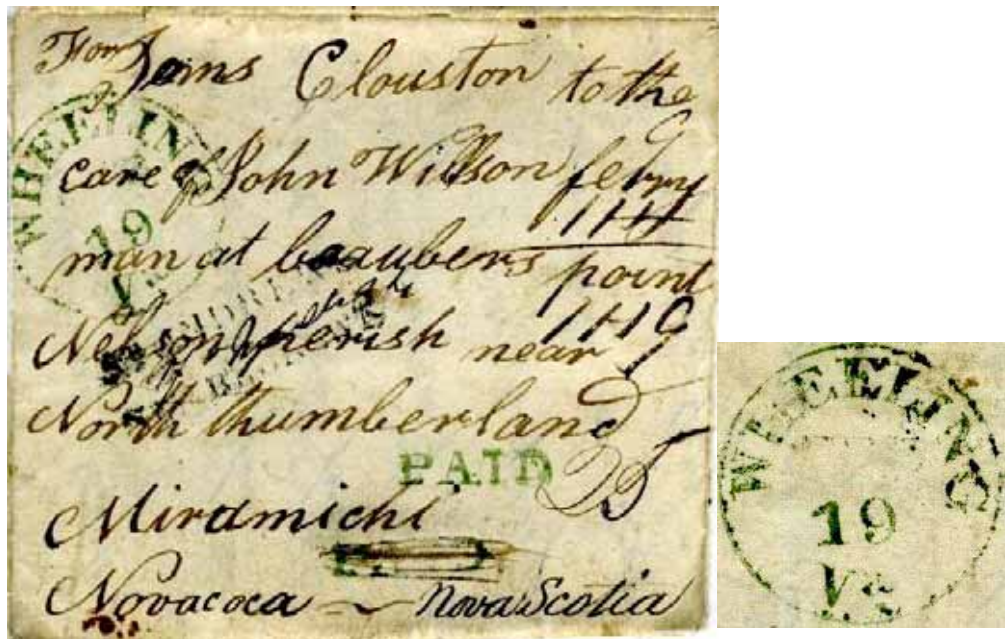 For Jems Clouston to the
care of John Willson ferry
1 1H1
man at beaubers point
Nelson perish near
1H10
North thumberland
PAID
25
Miramichi
Novacoca ~ Nova Scotia
WHEELING
19
Va
WHEELING
19
Va